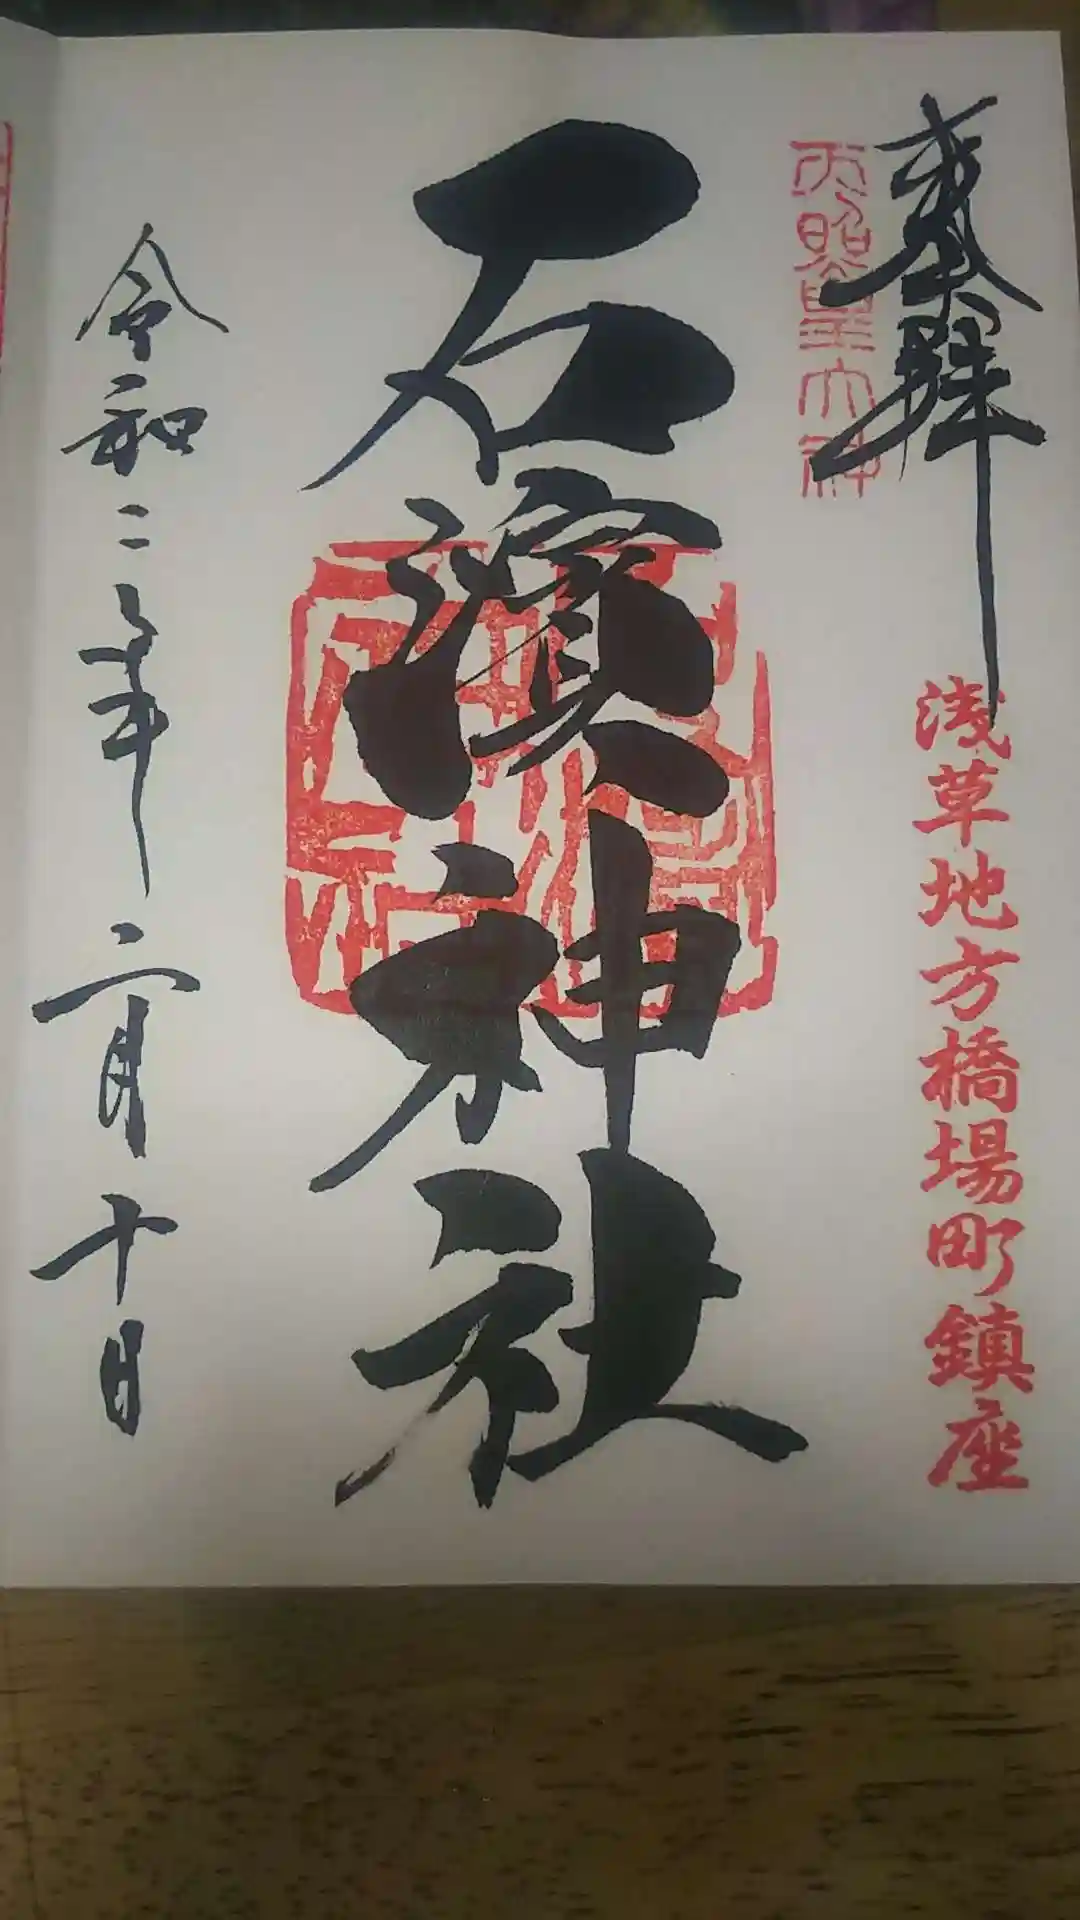 奉拝
天照皇大神
浅草地方橋場町鎮座
石濱神社
令和二年二月十日